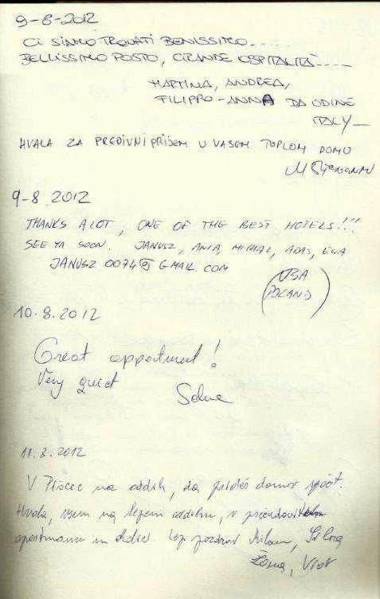 9-8-2012
CI SIAMO TROVATI BENISSIMO....
BELLISSIMO POSTO, GRANDE OSPITALITÀ....
MARTINA, ANDREA,
FILIPPO - ANNA DA UDINE
ITALY
HVALA ZA PREDIVNI PRIJEM U VAŠEM TOPLOM DOMU
9-8 2012
THANKS A LOT, ONE OF THE BEST HOTELS!!!
SEE YA SOON. JANUSZ, ANIA, MICHAŁ, ADAŚ, EWA
JANUSZ0074@GMAIL.COM
(POLAND)
10.8.2012
Great appartment!
Very quiet
11.8.2012
V Pisec na oddih, da prideš domov spočit.
Hvala, vsem na lepem oddihu, v
apartmanu in Lep pozdrav Milan,
Vior